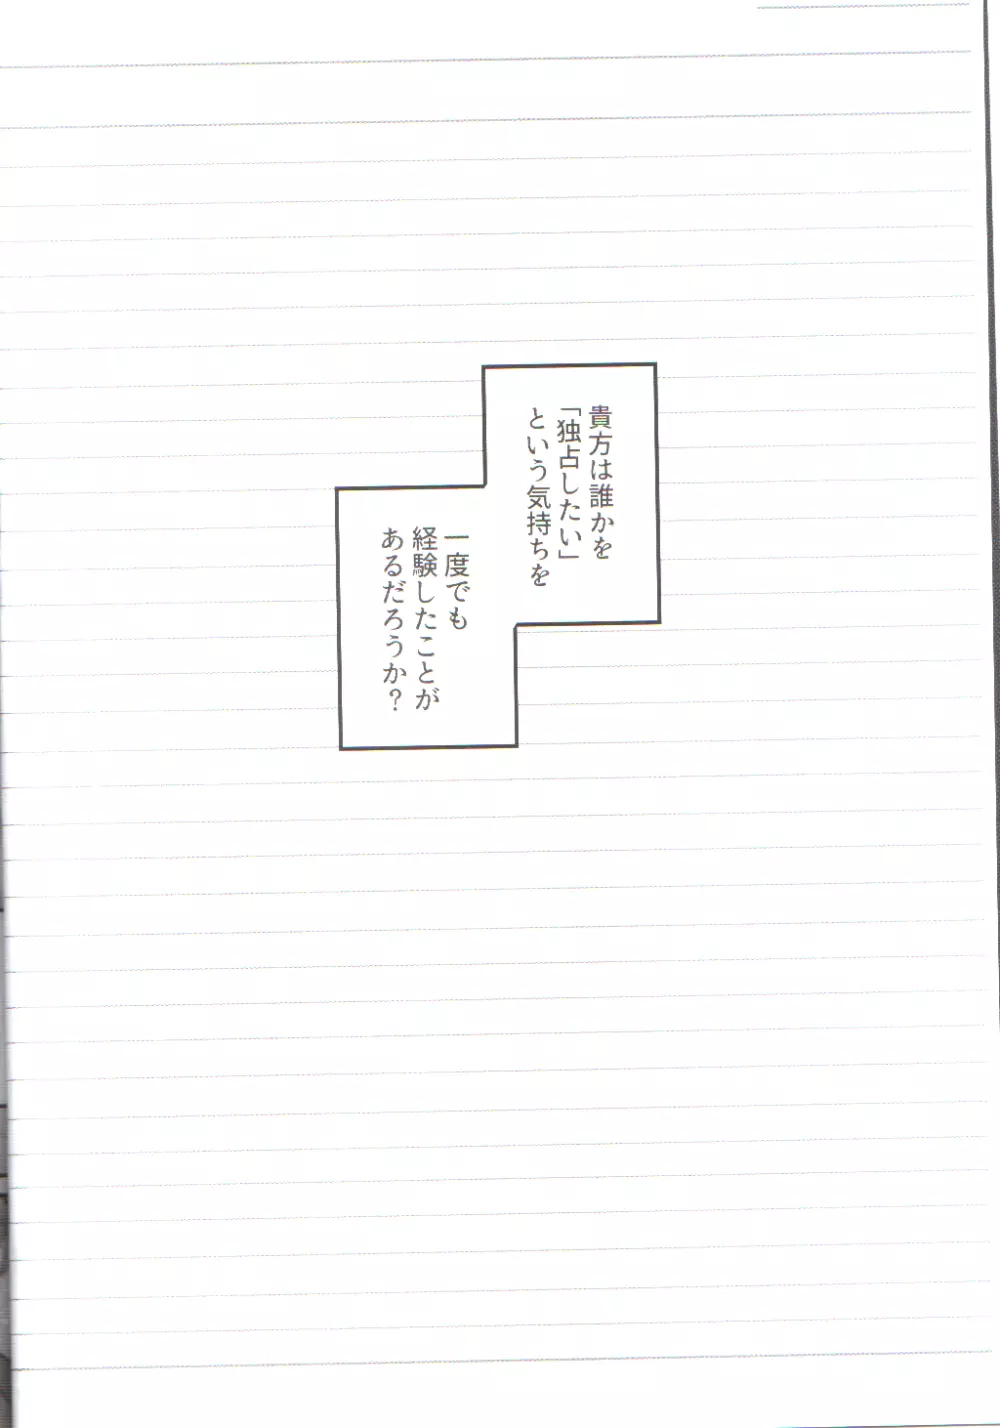 貴方は誰かを
「独占したい」
という気持ちを
一度でも
経験したことが
あるだろうか？